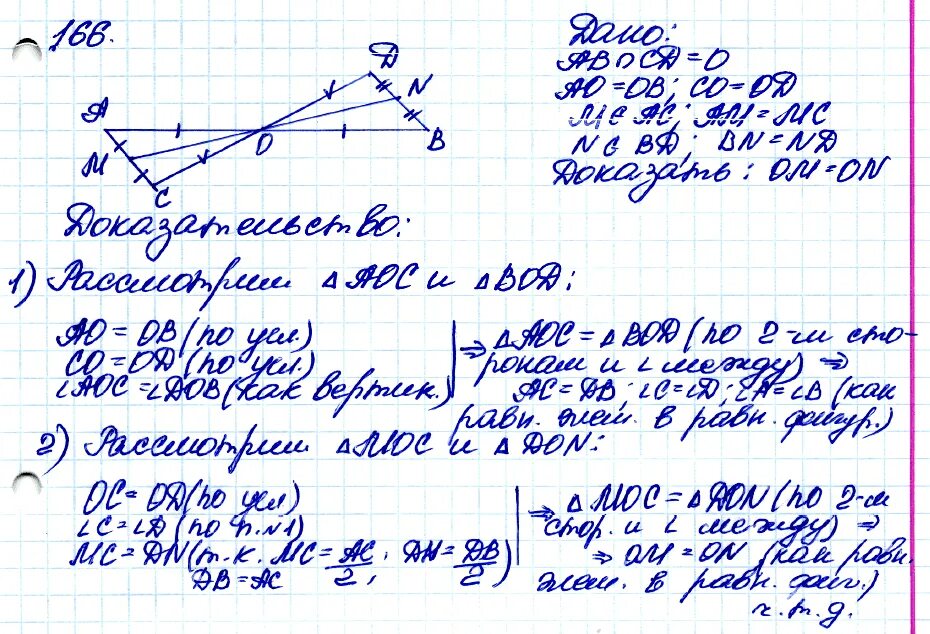 166.
Дано:
AB∩CD=O
AO=OB; CO=OD
M∈AC; AM=MC
N∈BD; BN=ND
Доказать: OM=ON
A
M
C
O
D
N
B
Доказательство:
1) Рассмотрим △AOC и △BOD:
AO = OB (по усл.)
CO = OD (по усл.)
∠AOC = ∠DOB (как вертик.)
⇒ △AOC = △BOD (по 2-м сто-
ронам и ∠ между) ⇒
AC = DB; ∠C=∠D; ∠A=∠B (как
равн. элем. в равн. фигур.)
2) Рассмотрим △MOC и △DON:
OC = OD (по усл)
∠C = ∠D (по п.N1)
MC = DN (т.к. MC = AC/2; DN = DB/2)
DB = AC
⇒ △MOC = △DON (по 2-м
стор. и ∠ между) ⇒
⇒ OM = ON (как равн.
элем. в равн. фиг.)
ч.т.д.